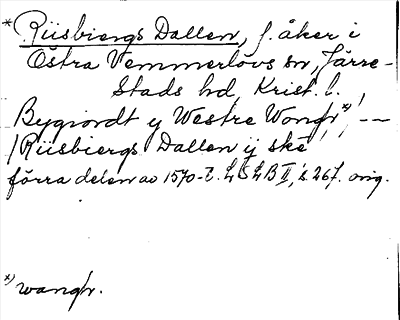 * Riisbiergs Dallen, f. åker i
Östra Vemmerlövs sn, Järre-
stads hd, Krist. l.
Bygiordt y Westre Wongr*), —
/ Riisbiergs Dallen ÿ ske
förra delen av 1570-t. LSLB II, s. 267. orig.
*) wangr.